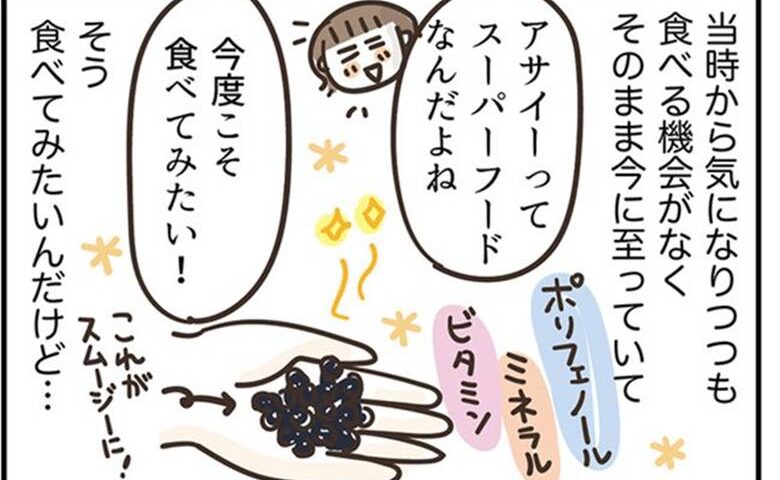 当時から気になりつつも
食べる機会がなく
そのまま今に至っていて
アサイーって
スーパーフード
なんだよね
今度こそ
食べてみたい！
ポリフェノール
ミネラル
ビタミン
これが
スムージーに！
そう
食べてみたいんだけど…